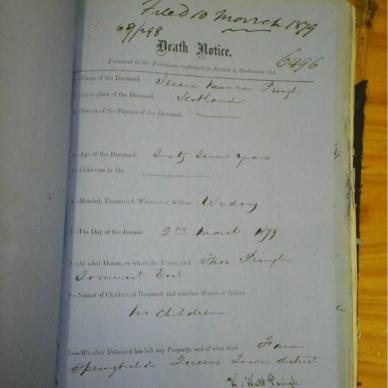 Filed 10 March 1879
6496
Death Notice.
Pursuant to the Provisions contained in Section 9, Ordinance 104.
1.—Name of the Deceased. Jessie Munro Pringle
2.—Birth-place of the Deceased. Scotland
3.—Names of the Parents of the Deceased. —
4.—Age of the Deceased. Sixty Seven years
5.—Condition in life
6.—Married, Unmarried, Widower or Widow. Widow
7.—The Day of the decease. 2nd March 1879
8.—At what House, or where the Person died Thos Pringle
Somerset East
9.—Names of Children of Deceased, and whether Majors or Minors
No Children
10.—Whether Deceased has left any Property, and of what kind Farm
Springfield Queens Town district
Watt Pringle